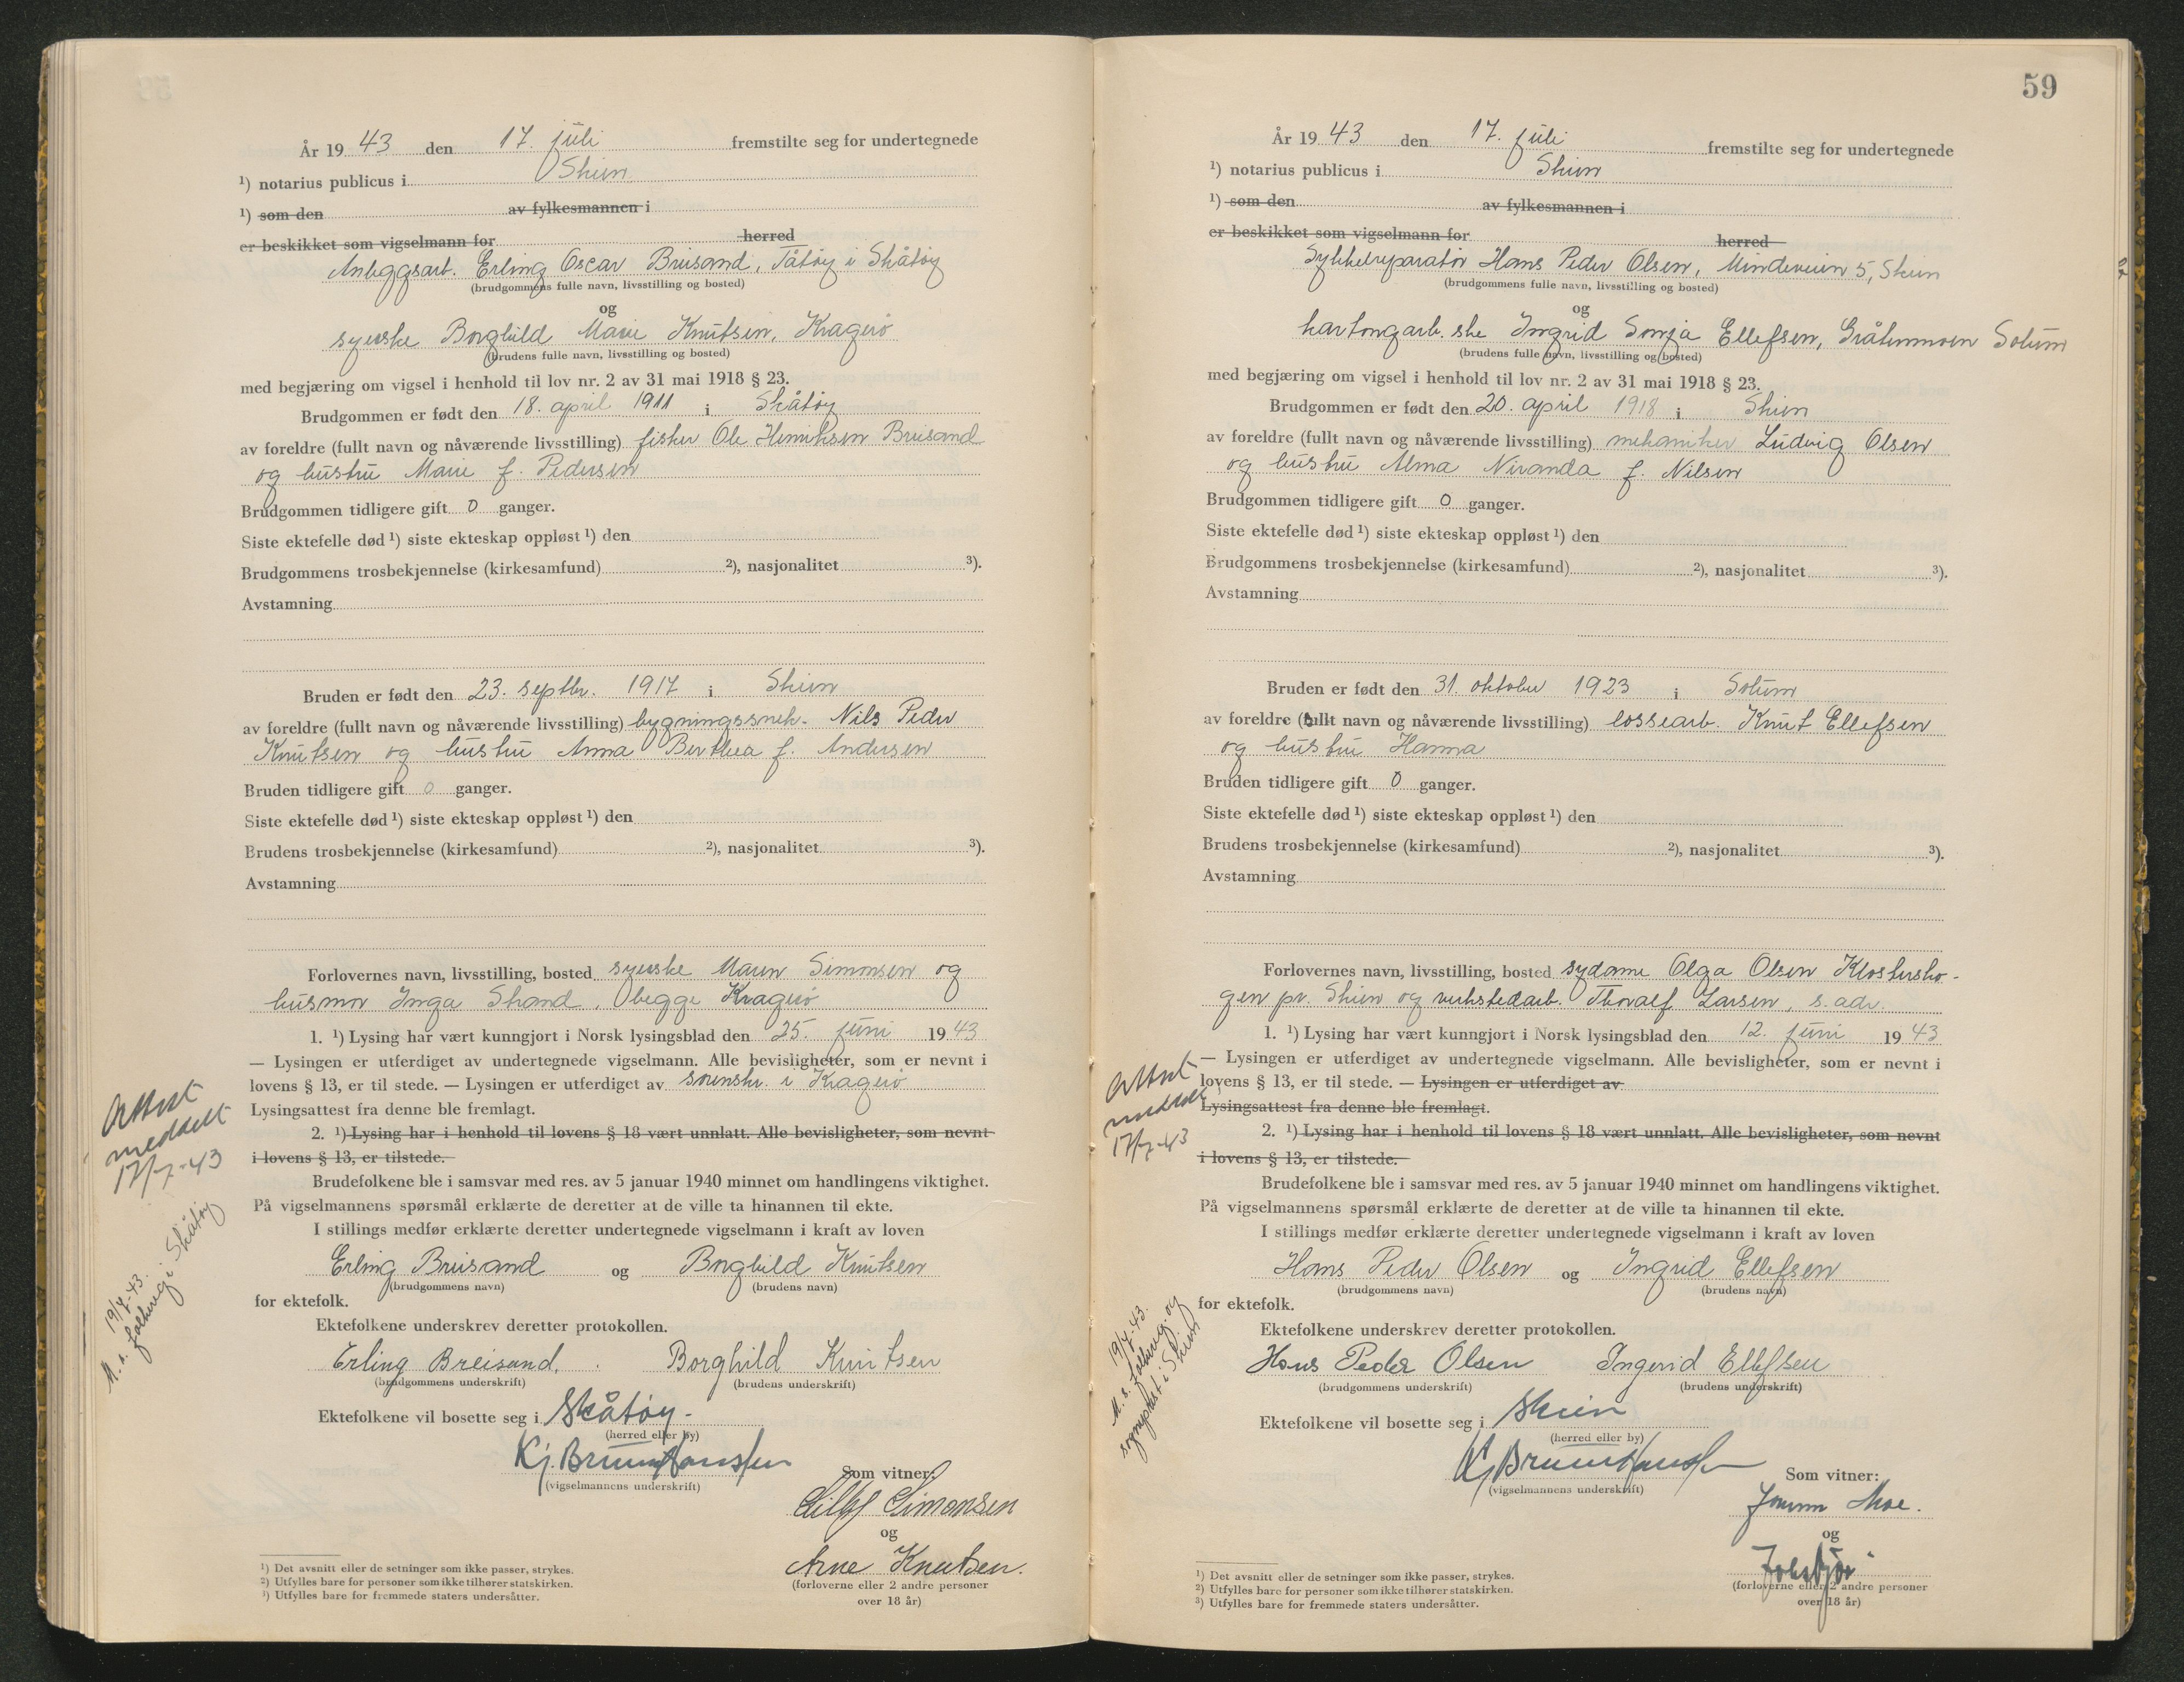 År 19 43 den 17. juli fremstilte seg for undertegnede
¹) notarius publicus i Skien
¹) som den av fylkesmannen i
er beskikket som vigselmann for herred
Anleggsarb. Erling Oscar Breisand, Tåtøy i Skåtøy
(brudgommens fulle navn, livsstilling og bosted)
og
syerske Borghild Marie Knutsen, Kragerø
(brudens fulle navn, livsstilling og bosted)
med begjæring om vigsel i henhold til lov nr. 2 av 31 mai 1918 § 23.
Brudgommen er født den 18. april 1911 i Skåtøy
av foreldre (fullt navn og nåværende livsstilling) fisker Ole Henriksen Breisand
og hustru Marie f. Pedersen
Brudgommen tidligere gift 0 ganger.
Siste ektefelle død ¹) siste ekteskap oppløst ¹) den
Brudgommens trosbekjennelse (kirkesamfund) ²), nasjonalitet ³).
Avstamning
Bruden er født den 23. septbr. 1917 i Skien
av foreldre (fullt navn og nåværende livsstilling) bygningssnek. Nils Peder
Knutsen og hustru Anna Berthea f. Andersen
Bruden tidligere gift 0 ganger.
Siste ektefelle død ¹) siste ekteskap oppløst ¹) den
Brudens trosbekjennelse (kirkesamfund) ²), nasjonalitet ³).
Avstamning
Forlovernes navn, livsstilling, bosted syerske Maren Simonsen og
husmor Inga Strand, begge Kragerø
1. ¹) Lysing har vært kunngjort i Norsk lysingsblad den 25. juni 19 43
— Lysingen er utferdiget av undertegnede vigselmann. Alle bevisligheter, som er nevnt i
lovens § 13, er til stede. — Lysingen er utferdiget av sorenskr. i Kragerø
Lysingsattest fra denne ble fremlagt.
2. ¹) Lysing har i henhold til lovens § 18 vært unnlatt. Alle bevisligheter, som nevnt
i lovens § 13, er tilstede.
Brudefolkene ble i samsvar med res. av 5 januar 1940 minnet om handlingens viktighet.
På vigselmannens spørsmål erklærte de deretter at de ville ta hinannen til ekte.
I stillings medfør erklærte deretter undertegnede vigselmann i kraft av loven
Erling Breisand og Borghild Knutsen
(brudgommens navn) (brudens navn)
for ektefolk.
Ektefolkene underskrev deretter protokollen.
Erling Breisand. Borghild Knutsen
(brudgommens underskrift) (brudens underskrift)
Ektefolkene vil bosette seg i Skåtøy.
(herred eller by)
Kj. Bruun Hanssen
(vigselmannens underskrift)
Som vitner:
Simonsen
og
Arne Knutsen.
(forloverne eller 2 andre personer
over 18 år)
¹) Det avsnitt eller de setninger som ikke passer, strykes.
²) Utfylles bare for personer som ikke tilhører statskirken.
³) Utfylles bare for fremmede staters undersåtter.
Attest
meddelt
17/7-43
19/7-43.
M. s. folkereg. i Skåtøy
59
År 19 43 den 17. juli fremstilte seg for undertegnede
¹) notarius publicus i Skien
¹) som den av fylkesmannen i
er beskikket som vigselmann for herred
Sykkelreparatør Hans Peder Olsen, Mindeveien 5, Skien
(brudgommens fulle navn, livsstilling og bosted)
og
kartongarb.ske Ingrid Sonja Ellefsen, Gråtenmoen Solum
(brudens fulle navn, livsstilling og bosted)
med begjæring om vigsel i henhold til lov nr. 2 av 31 mai 1918 § 23.
Brudgommen er født den 20. april 1918 i Skien
av foreldre (fullt navn og nåværende livsstilling) mekaniker Ludvig Olsen
og hustru Alma Niranda f. Nilsen
Brudgommen tidligere gift 0 ganger.
Siste ektefelle død ¹) siste ekteskap oppløst ¹) den
Brudgommens trosbekjennelse (kirkesamfund) ²), nasjonalitet ³).
Avstamning
Bruden er født den 31. oktober 1923 i Solum
av foreldre (fullt navn og nåværende livsstilling) lossearb. Knut Ellefsen
og hustru Hanna
Bruden tidligere gift 0 ganger.
Siste ektefelle død ¹) siste ekteskap oppløst ¹) den
Brudens trosbekjennelse (kirkesamfund) ²), nasjonalitet ³).
Avstamning
Forlovernes navn, livsstilling, bosted sydame Olga Olsen Klostersko-
gen pr. Skien og verkstedarb. Thoralf Larsen, s. adr.
1. ¹) Lysing har vært kunngjort i Norsk lysingsblad den 12. juni 19 43
— Lysingen er utferdiget av undertegnede vigselmann. Alle bevisligheter, som er nevnt i
lovens § 13, er til stede. — Lysingen er utferdiget av
Lysingsattest fra denne ble fremlagt.
2. ¹) Lysing har i henhold til lovens § 18 vært unnlatt. Alle bevisligheter, som nevnt
i lovens § 13, er tilstede.
Brudefolkene ble i samsvar med res. av 5 januar 1940 minnet om handlingens viktighet.
På vigselmannens spørsmål erklærte de deretter at de ville ta hinannen til ekte.
I stillings medfør erklærte deretter undertegnede vigselmann i kraft av loven
Hans Peder Olsen og Ingrid Ellefsen
(brudgommens navn) (brudens navn)
for ektefolk.
Ektefolkene underskrev deretter protokollen.
Hans Peder Olsen Ingrid Ellefsen
(brudgommens underskrift) (brudens underskrift)
Ektefolkene vil bosette seg i Skien
(herred eller by)
Kj Bruun Hanssen
(vigselmannens underskrift)
Som vitner:
Moe.
og
(forloverne eller 2 andre personer
over 18 år)
¹) Det avsnitt eller de setninger som ikke passer, strykes.
²) Utfylles bare for personer som ikke tilhører statskirken.
³) Utfylles bare for fremmede staters undersåtter.
Attest
meddelt
17/7-43
19/7-43.
M. s. folkereg. og
sogneprest i Skien